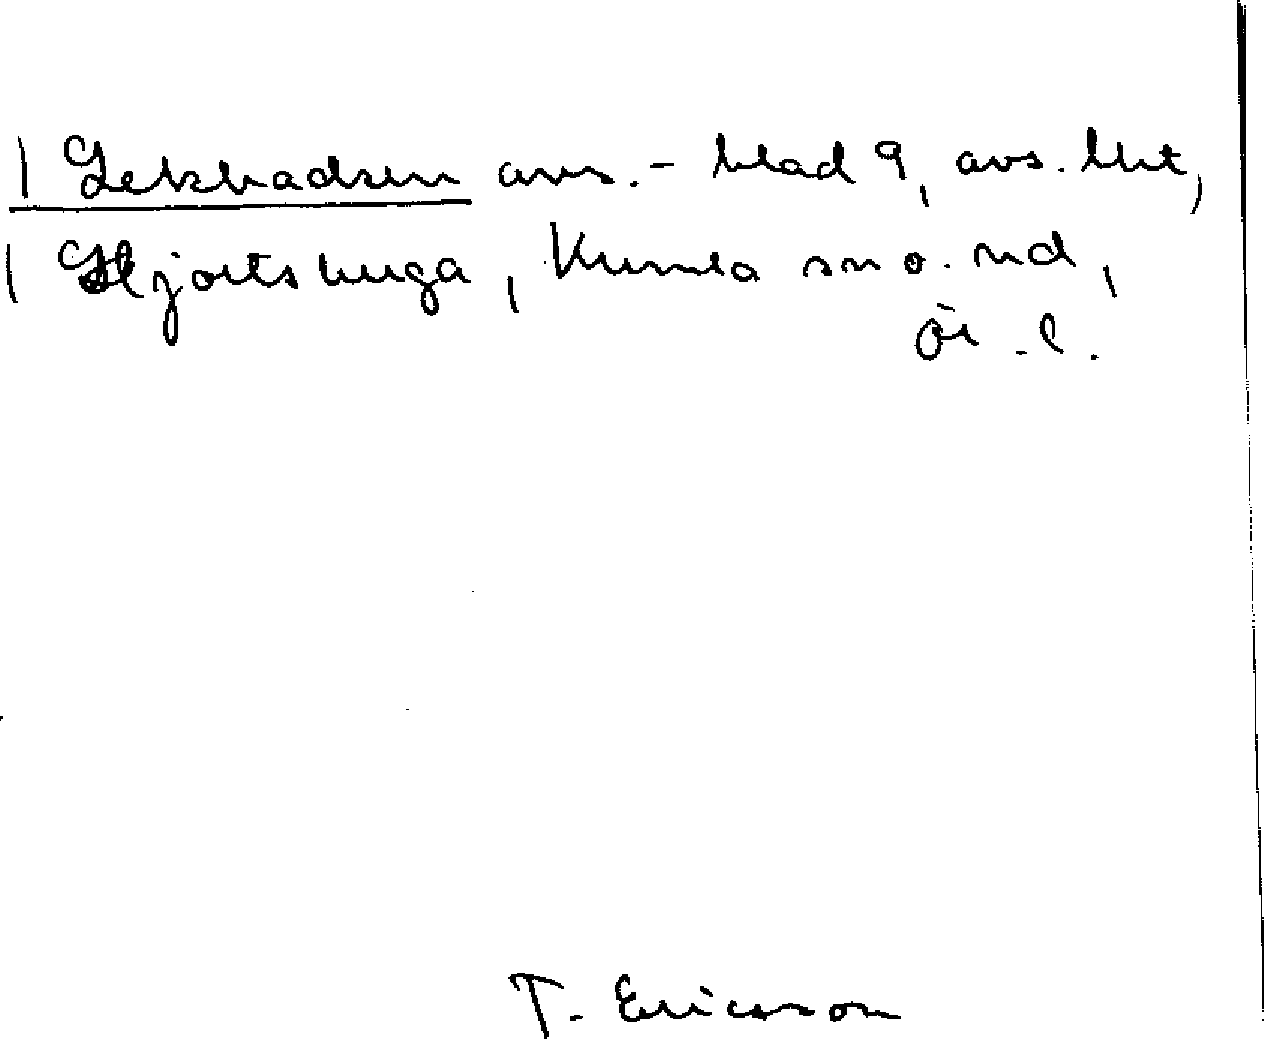 | Lekhadsen avs. - blad 9, avs. lht,
| Hjortsberga, Kumla sn o. hd,
Ör. l.
T. Ericsson